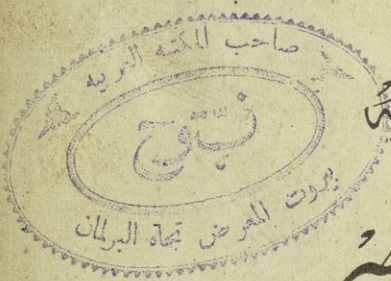 صاحب المكتبة العربية
بيروت المعرض تجاه البرلمان